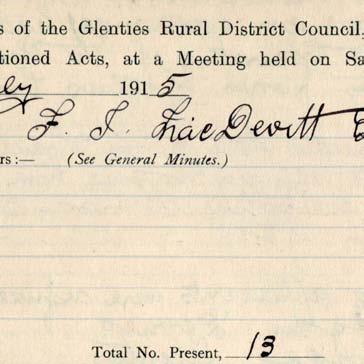 s of the Glenties Rural District Council,
tioned Acts, at a Meeting held on Sa
ly 1915
F. I. MacDevitt
rs :— (See General Minutes.)
Total No. Present, 13